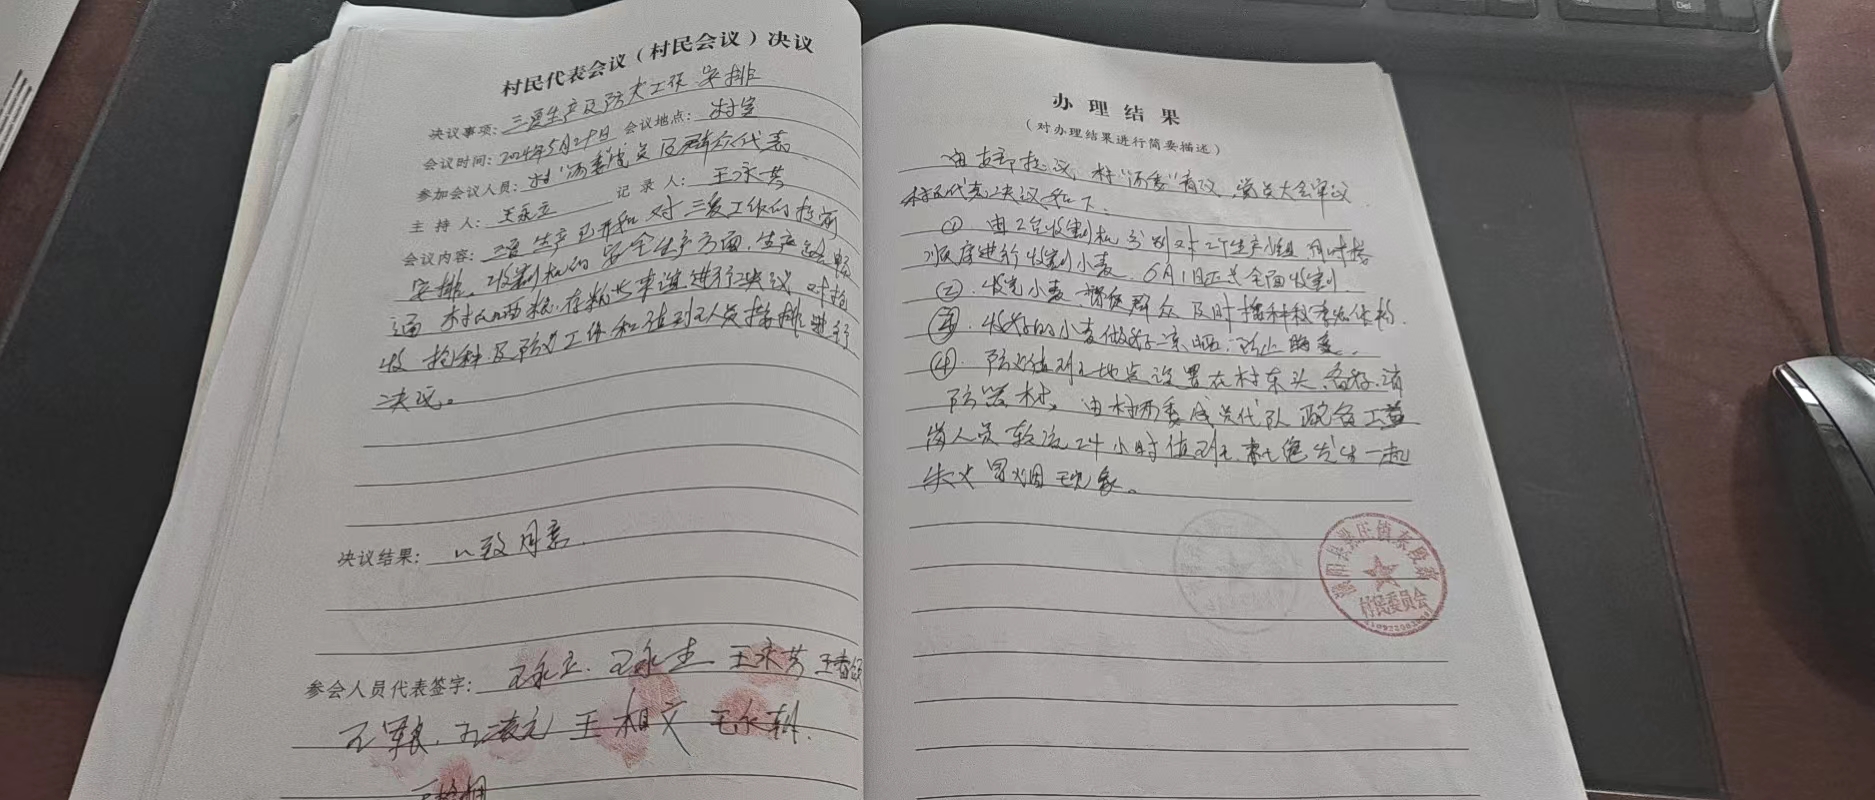 村民代表会议（村民会议）决议
决议事项：三夏生产及防火工作安排
会议时间：2024年5月29日 会议地点：村室
参加会议人员：村"两委"成员及群众代表
主持人：王永立 记录人：王永芳
会议内容：三夏生产已开始 对三夏工作的提前
安排。收割机的安全生产方面，生产路畅
通 村民晒粮，存粮 进行决议 对抢
收 抢种及防火工作和值班人员 进行
决议。
决议结果：一致同意。
参会人员代表签字：王永立、王永 王永芳 王春
王 王 王相文 王永
办理结果
（对办理结果进行简要描述）
由支部提议，村"两委"商议，党员大会审议
村民代表决议如下：
①由2台收割机分别对2个生产小组 同时按
顺序进行收割小麦，6月1日正式全面收割
②收完小麦 群众及时播种秋季农作物。
③ 收好的小麦做好凉晒，防止
④ 防火值班地点设置在村东头，备好消
防器材。由村两委成员代队 公益
岗人员轮流24小时值班 杜绝发生一起
失火冒烟现象。
村民委员会